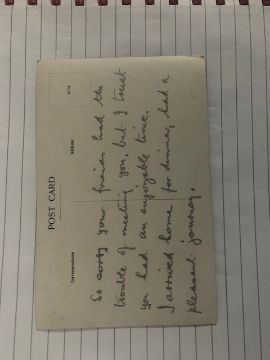 POST CARD
Correspondence
Address
So sorry your friends had the
trouble of meeting you, but I trust
you had an enjoyable time.
I arrived home for dinner, had a
pleasant journey.